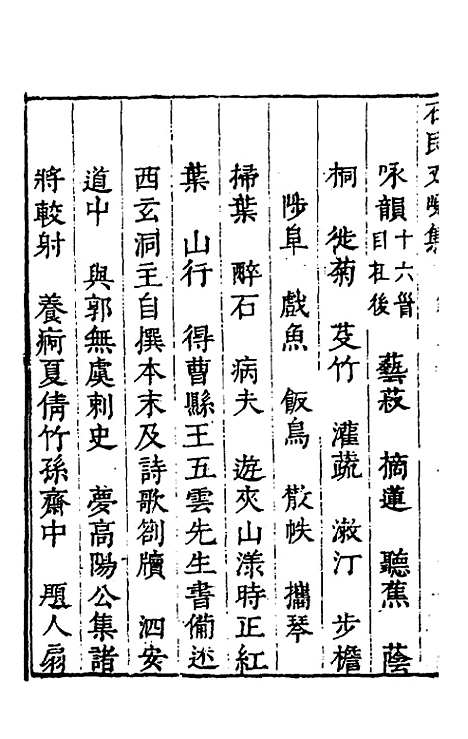 石民又峴集
咏韻十六首目在後 藝菽 摘蓮 聽蕉 蔭
桐 徙菊 芟竹 灌蔬 漱汀 步檐
陟阜 戲魚 飯鳥 散帙 攜琴
掃葉 醉石 病夫 遊夾山漾時正紅
葉 山行 得曹縣王五雲先生書備述
西玄洞主自撰本末及詩歌劄牘 泗安
道中 與郭無虞刺史 夢高陽公集諸
將較射 養疴夏倩竹孫齋中 題人扇